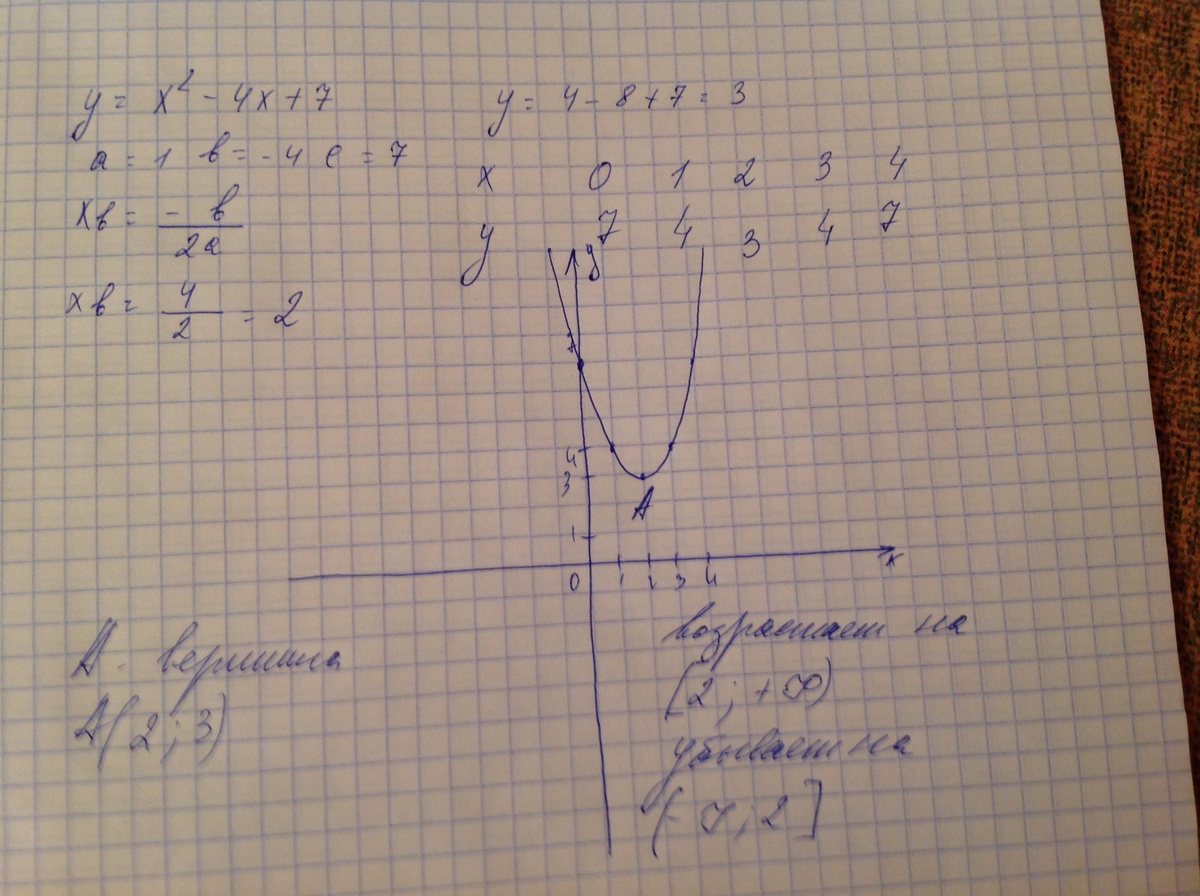 y = x² - 4x + 7
a = 1 в = -4 c = 7
xв = - в / 2a
xв = 4 / 2 = 2
y = 4 - 8 + 7 = 3
x 0 1 2 3 4
y 7 4 3 4 7
y
7
4
3
A
1
0 1 2 3 4 x
A - вершина
A(2; 3)
возрастает на
[2; +∞)
убывает на
(-∞; 2]